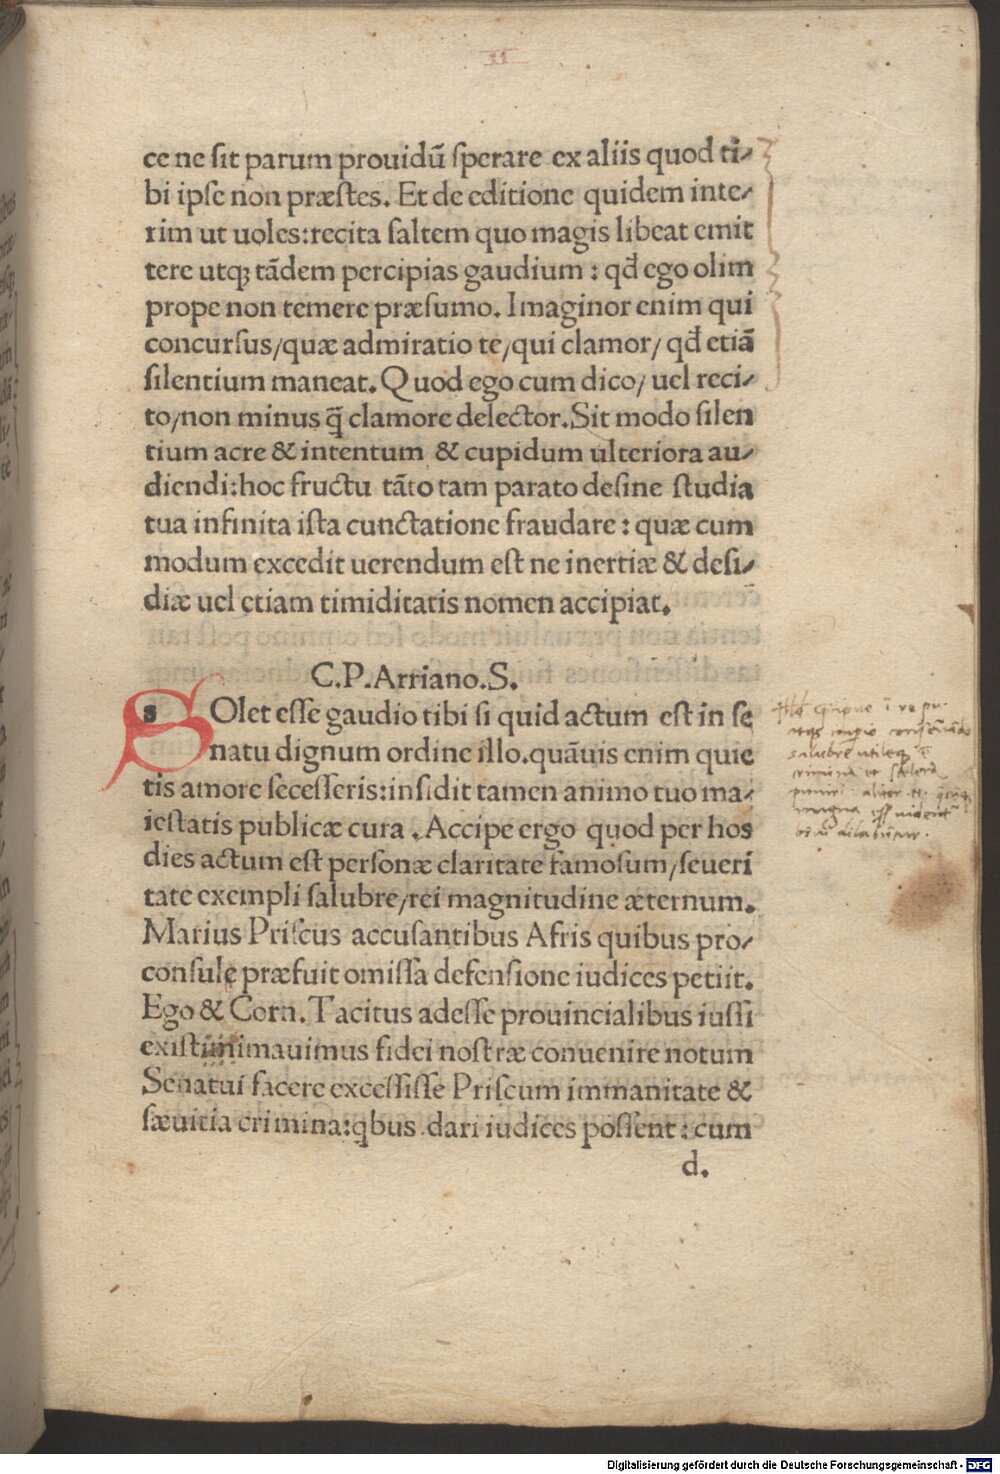 II
ce ne sit parum prouidū sperare ex aliis quod ti-
bi ipse non præstes. Et de editione quidem inte-
rim ut uoles: recita saltem quo magis libeat emit
tere utqꝫ tādem percipias gaudium : qđ ego olim
prope non temere præsumo. Imaginor enim qui
concursus/quæ admiratio te/qui clamor/ qđ etiā
silentium maneat. Quod ego cum dico/ uel reci-
to/non minus q̄ clamore delector. Sit modo silen
tium acre & intentum & cupidum ulteriora au-
diendi: hoc fructu tāto tam parato desine studia
tua infinita ista cunctatione fraudare : quæ cum
modum excedit uerendum est ne inertiæ & desi-
diæ uel etiam timiditatis nomen accipiat.
C.P.Arriano.S.
SOlet esse gaudio tibi si quid actum est in se
natu dignum ordine illo. quāuis enim quie
tis amore secesseris: insidit tamen animo tuo ma-
iestatis publicæ cura . Accipe ergo quod per hos
dies actum est personæ claritate famosum/seueri
tate exempli salubre/rei magnitudine æternum.
Marius Priscus accusantibus Afris quibus pro-
consule præfuit omissa defensione iudices petiit.
Ego & Corn. Tacitus adesse prouincialibus iussi
existimimauimus fidei nostræ conuenire notum
Senatui facere excessisse Priscum immanitate &
sæuitia crimina: qbus dari iudices possent : cum
d.
Digitalisierung gefördert durch die Deutsche Forschungsgemeinschaft - DFG